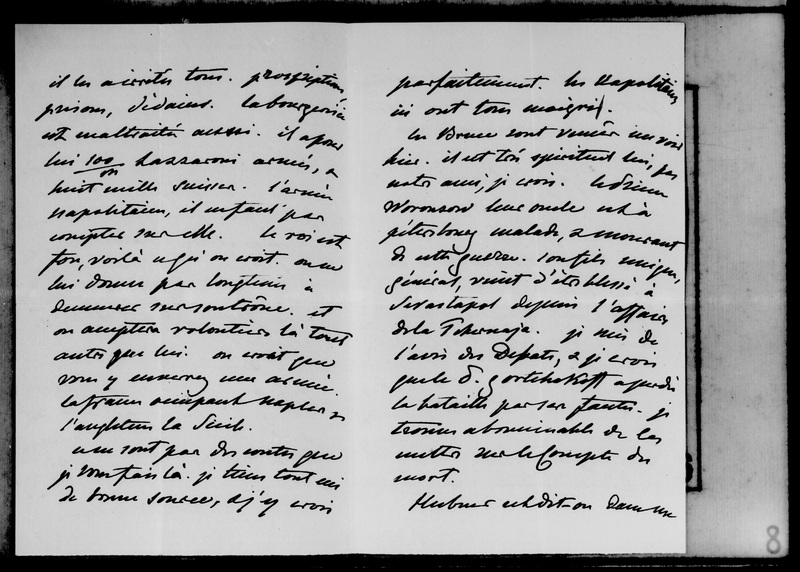 il les a irrités tous. proscriptions
prisons, dédains. la bourgeoisie
est maltraitée aussi. il a pour
lui 100/m lazzaroni armés, &
huit mille Suisses. l'armée
napolitaine, il ne faut pas
compter sur elle. le roi est
fou, voilà ce qu'on croit. on ne
lui donne pas longtems à
demeurer sur son trône. et
on acceptera volontiers là tout
autre que lui. on croit que
vous y enverrez une armée.
la france occupant Naples &
l'angleterre la Sicile.
ce ne sont pas des contes que
je vous fais là. je tiens tout ceci
de bonne source, & j'y crois
parfaitement. les Napolitains
ici ont tous maigri.
les Bruce sont venus me voir
hier. il est très spirituel lui, pas
notre ami, je crois. le Prince
Woronzow leur oncle est à
pétersbourg malade, & mourant
de cette guerre. son fils unique,
général, vient d'être blessé à
Sevastopol depuis l'affaire
de la Tchernaja. je suis de
l'avis des Débats, & je crois
que le P. gortchakoff a perdu
la bataille par ses fautes. je
trouve abominable de les
mettre sur le compte du
mort.
Hubner est dit-on dans une
8